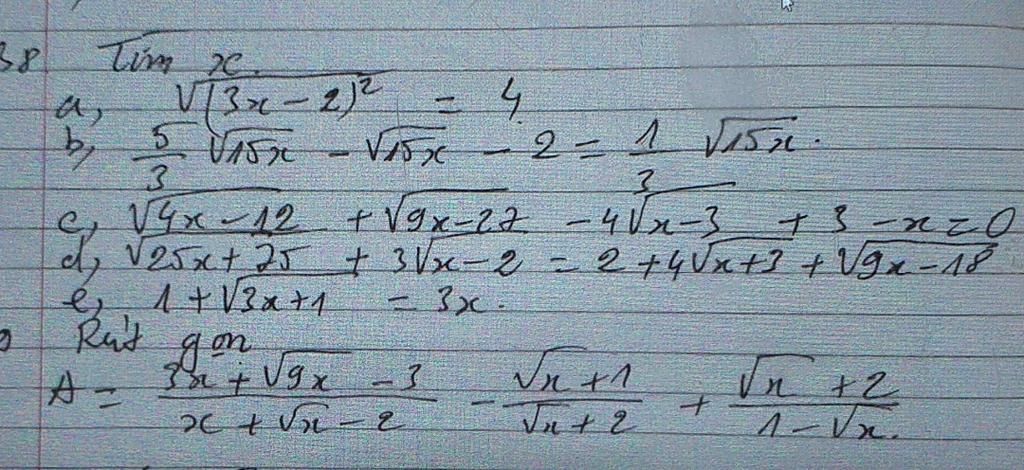 38 Tìm x.
a, √(3x-2)² = 4
b, 5/3 √15x - √15x - 2 = 1/3 √15x.
c, √4x-12 + √9x-27 - 4√x-3 + 3 - x = 0
d, √25x+25 + 3√x-2 = 2 + 4√x+3 + √9x-18
e, 1 + √3x+1 = 3x.
9 Rút gọn
A = 3x + √9x - 3 / x + √x - 2 - √x + 1 / √x + 2 + √x + 2 / 1 - √x.